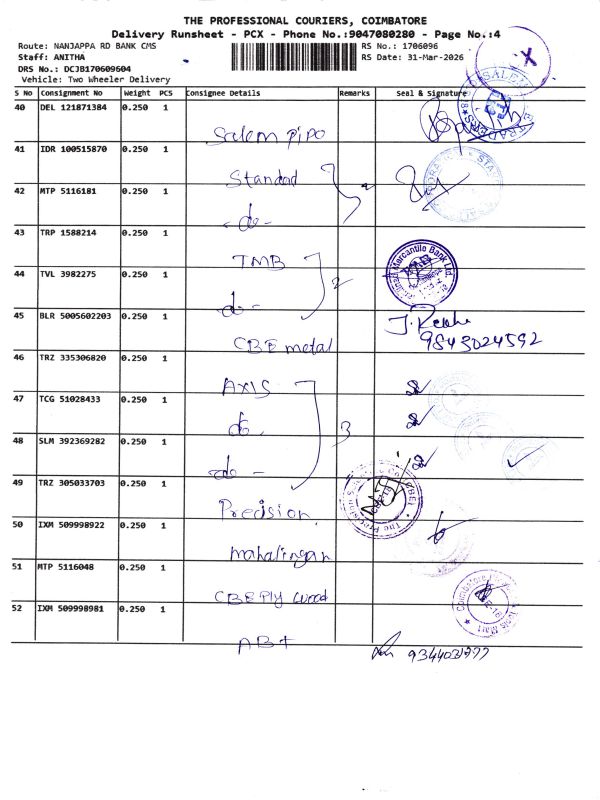 THE PROFESSIONAL COURIERS, COIMBATORE
Delivery Runsheet - PCX - Phone No.:9047080280 - Page No.:4
Route: NANJAPPA RD BANK CMS
RS No.: 1706096
Staff: ANITHA
RS Date: 31-Mar-2026
DRS No.: DCJB170609604
Vehicle: Two Wheeler Delivery
S No Consignment No Weight PCS Consignee Details Remarks Seal & Signature
40 DEL 121871384 0.250 1
Salem pipo
41 IDR 100515870 0.250 1
Standad
42 MTP 5116181 0.250 1
-do-
43 TRP 1588214 0.250 1
TMB
44 TVL 3982275 0.250 1 2
do-
45 BLR 5005602203 0.250 1
CBE metal 9843024592
46 TRZ 335306820 0.250 1
AXIS
47 TCG 51028433 0.250 1
do- 3
48 SLM 392369282 0.250 1
-do-
49 TRZ 305033703 0.250 1
Precision
50 IXM 509998922 0.250 1
mahalingan
51 MTP 5116048 0.250 1
CBE Ply wood
52 IXM 509998981 0.250 1
ABT
SALEM
TRADERS
Mercantile Bank Ltd.